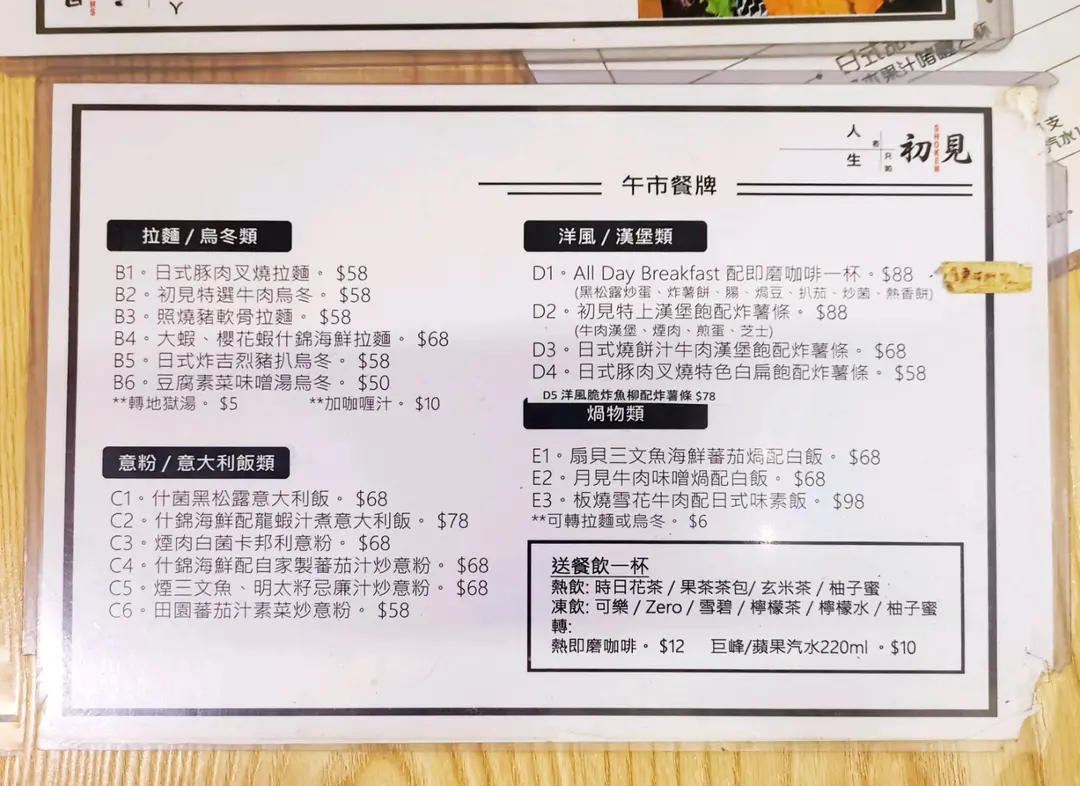 人生
若只如
初見
SHOKEN
午市餐牌
拉麵 / 烏冬類
B1。日式豚肉叉燒拉麵。 $58
B2。初見特選牛肉烏冬。 $58
B3。照燒豬軟骨拉麵。 $58
B4。大蝦、櫻花蝦什錦海鮮拉麵。 $68
B5。日式炸吉烈豬扒烏冬。 $58
B6。豆腐素菜味噌湯烏冬。 $50
**轉地獄湯。 $5 **加咖喱汁。 $10
意粉 / 意大利飯類
C1。什菌黑松露意大利飯。 $68
C2。什錦海鮮配龍蝦汁煮意大利飯。 $78
C3。煙肉白菌卡邦利意粉。 $68
C4。什錦海鮮配自家製蕃茄汁炒意粉。 $68
C5。煙三文魚、明太籽忌廉汁炒意粉。 $68
C6。田園蕃茄汁素菜炒意粉。 $58
洋風 / 漢堡類
D1。All Day Breakfast 配即磨咖啡一杯。$88
(黑松露炒蛋、炸薯餅、腸、焗豆、扒茄、炒菌、熱香餅)
D2。初見特上漢堡飽配炸薯條。 $88
(牛肉漢堡、煙肉、煎蛋、芝士)
D3。日式燒餅汁牛肉漢堡飽配炸薯條。 $68
D4。日式豚肉叉燒特色白扁飽配炸薯條。 $58
D5 洋風脆炸魚柳配炸薯條 $78
煱物類
E1。扇貝三文魚海鮮蕃茄煱配白飯。 $68
E2。月見牛肉味噌煱配白飯。 $68
E3。板燒雪花牛肉配日式味素飯。 $98
**可轉拉麵或烏冬。 $6
送餐飲一杯
熱飲: 時日花茶 / 果茶茶包/ 玄米茶 / 柚子蜜
凍飲: 可樂 / Zero / 雪碧 / 檸檬茶 / 檸檬水 / 柚子蜜
轉:
熱即磨咖啡。 $12 巨峰/蘋果汽水220ml 。$10